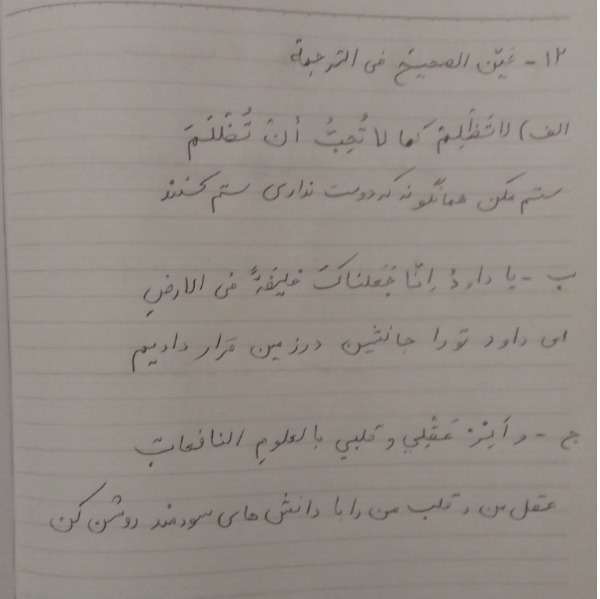 ١٢- عَیِّن الصحیح فی الترجمة
الف) لا تَظْلِمْ کما لا تُحِبُّ أنْ تُظْلَمَ
ستم مکن همانگونه که دوست نداری ستم کنند
ب - یا داودُ إنّا جَعَلناکَ خلیفةً فی الارضِ
ای داود تو را جانشین در زمین قرار دادیم
ج - و أَنِرْ عَقْلِي و قلبي بالعلومِ النافعاتِ
عقل من و قلب من را با دانش های سودمند روشن کن